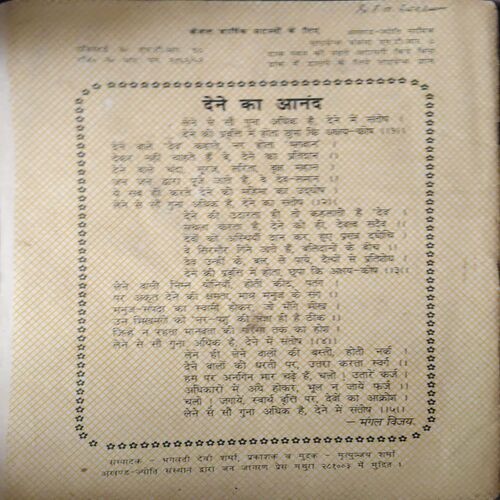 केवल वार्षिक सदस्यों के लिए
अखण्ड-ज्योति मासिक
देने का आनंद
लेने से सौ गुना अधिक है, देने में संतोष ।
देने की प्रवृत्ति में होता छुपा कि अक्षय-कोष ।।१।।
देने वाले 'देव' कहाते, नर होता 'भगवान' ।
देकर नहीं चाहते हैं वे, देने का प्रतिदान ।।
देने वाले चंदा, सूरज, सरिता, वृक्ष महान ।
जन जन द्वारा पूजे जाते हैं, वे देव-समान ।।
ये सब ही करते देने की महिमा का उद्घोष ।
लेने से सौ गुना अधिक है, देने का संतोष ।।२।।
देने की उदारता ही तो कहलाती है 'देव' ।
सफल करता है, देने को ही, देवत्व सदैव ।।
देवों को अस्थियाँ दान कर, हुए प्रसन्न दधीचि ।
वे सिरमौर गिने जाते हैं, बलिदानों के बीच ।।
देव उन्हीं के बल, से पाये, दैत्यों से प्रतिशोध ।
देने की प्रवृत्ति में होता, छुपा कि अक्षय-कोष ।।३।।
लेने वाली निम्न योनियाँ, होती कीट, पतंग ।
पर अकूत देने की क्षमता, मात्र मनुज के संग ।।
मनुज-संपदा का स्वामी होकर, जो माँगे भीख ।
उन भिखमंगों को 'नर-पशु' की संज्ञा ही है ठीक ।।
जिन्हें न रहता मानवता की गरिमा तक का होश ।
लेने से सौ गुना अधिक है, देने में संतोष ।।४।।
लेने ही लेने वालों की बस्ती, होती नर्क ।
देने वालों की धरती पर, उतरा करता स्वर्ग ।।
हम पर अनगिन भार चढ़े हैं, चलो ! उतारें कर्ज ।
अधिकारों में अंधे होकर, भूल न जायें फर्ज ।।
चलो ! जगायें, स्वार्थ वृत्ति पर, देवों का आक्रोश ।
लेने से सौ गुना अधिक है, देने में संतोष ।।५।।
— मंगल विजय.
सम्पादक - भगवती देवी शर्मा, प्रकाशक व मुद्रक - मृत्युञ्जय शर्मा
अखण्ड-ज्योति संस्थान द्वारा जन जागरण प्रेस मथुरा २८१००३ में मुद्रित ।